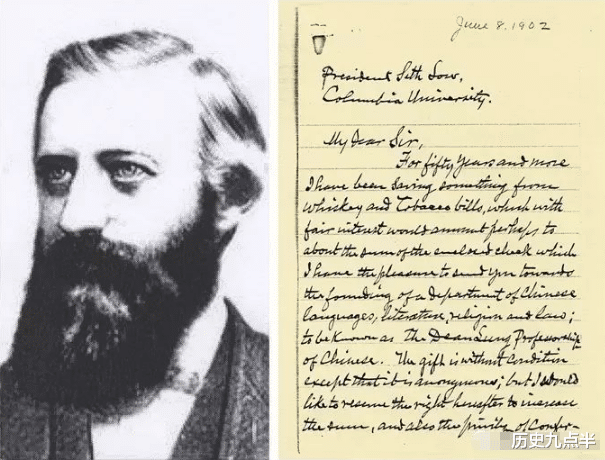 June 8. 1902
President Seth Low,
Columbia University.
My Dear Sir,
For fifty years and more
I have been saving something from
whiskey and Tobacco bills, which with
fair interest would amount perhaps to
about the sum of the enclosed check which
I have the pleasure to send you towards
the founding of a department of Chinese
languages, literature, religion and law;
to be known as the Dean Lung Professorship
of Chinese. The gift is without condition
except that it is anonymous; but I should
like to reserve the right hereafter to increase
the sum, and also the privilege of Confer-
历史九点半